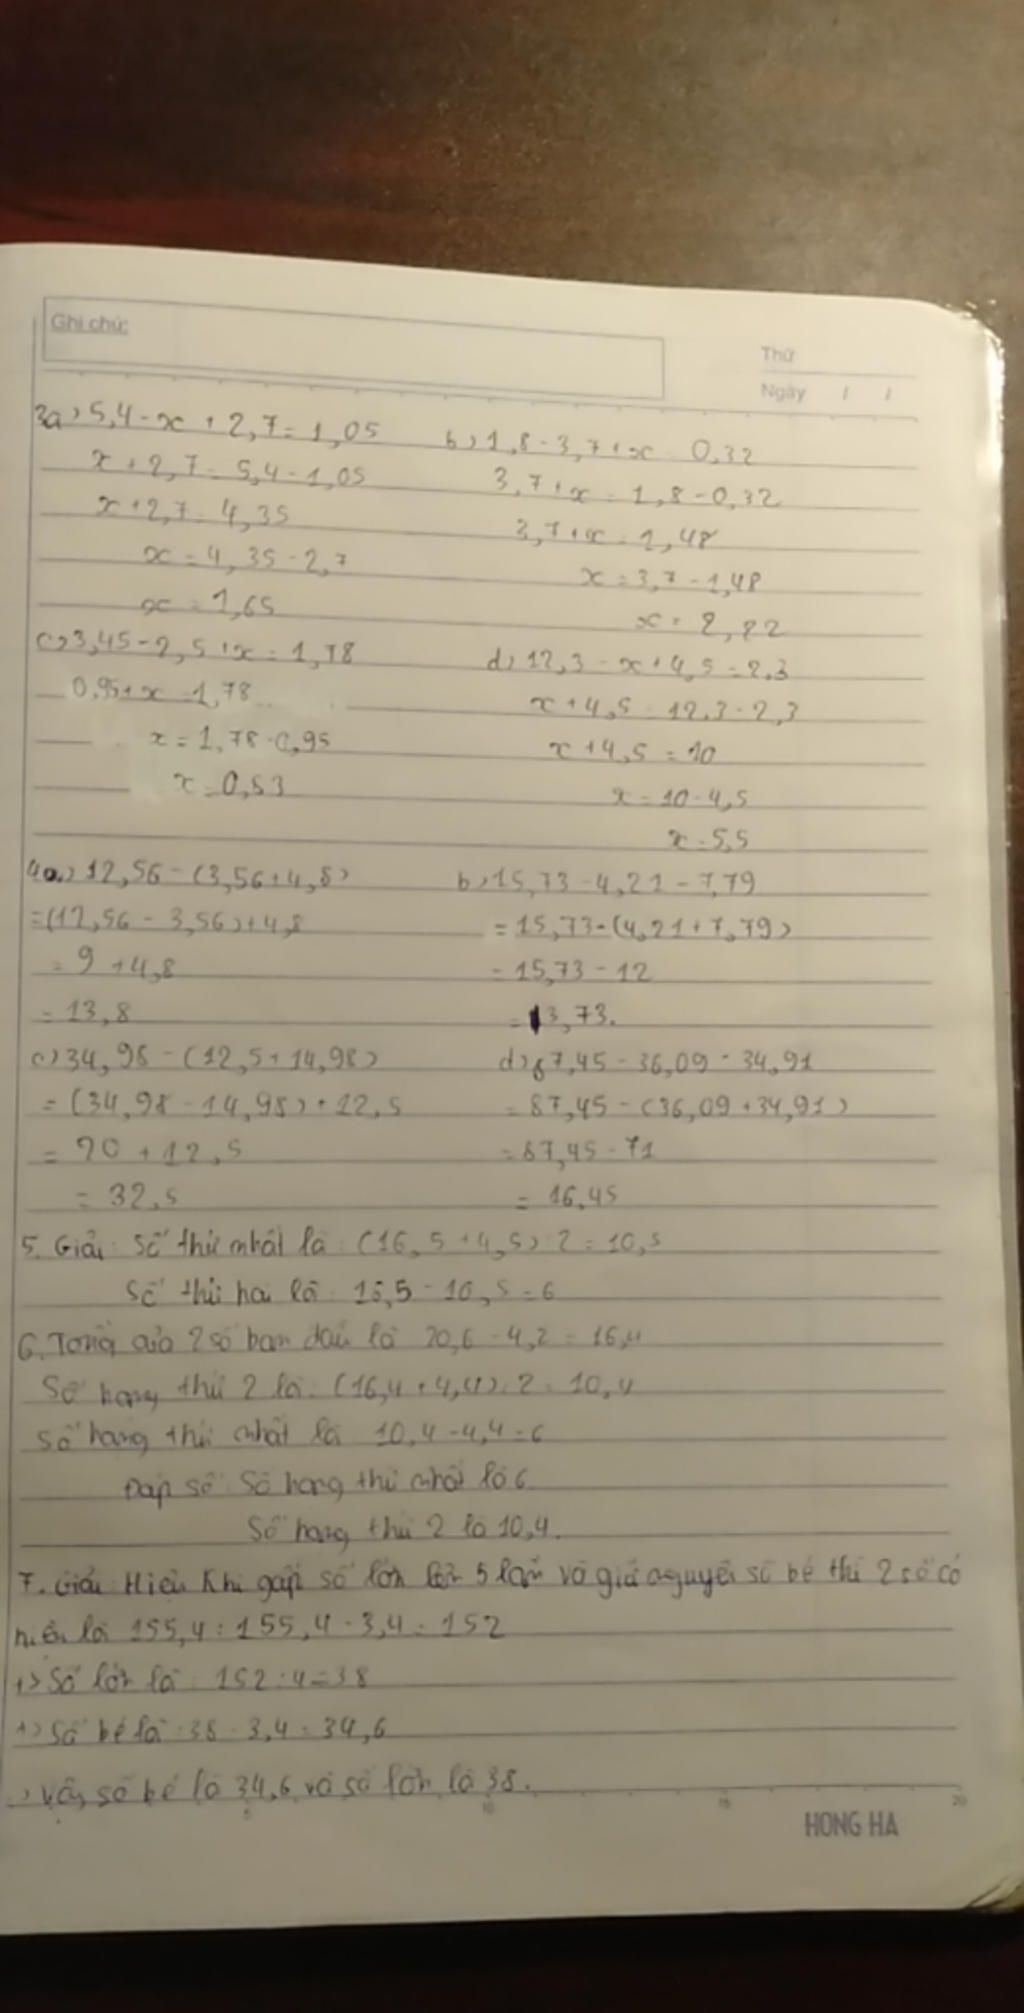 Ghi chú:
Thứ
Ngày / /
3a) 5,4 - x + 2,7 = 1,05
x + 2,7 = 5,4 - 1,05
x + 2,7 = 4,35
x = 4,35 - 2,7
x = 1,65
b) 1,8 - 3,7 + x = 0,32
3,7 + x = 1,8 - 0,32
3,7 + x = 1,48
x = 3,7 - 1,48
x = 2,22
c) 3,45 - 2,5 + x = 1,78
0,95 + x = 1,78
x = 1,78 - 0,95
x = 0,53
d) 12,3 - x + 4,5 = 2,3
x + 4,5 = 12,3 - 2,3
x + 4,5 = 10
x = 10 - 4,5
x = 5,5
4a) 12,56 - (3,56 + 4,8)
= (12,56 - 3,56) + 4,8
= 9 + 4,8
= 13,8
b) 15,73 - 4,21 - 7,79
= 15,73 - (4,21 + 7,79)
= 15,73 - 12
= 13,73.
c) 34,98 - (12,5 + 14,98)
= (34,98 - 14,98) + 12,5
= 20 + 12,5
= 32,5
d) 87,45 - 36,09 - 34,91
= 87,45 - (36,09 + 34,91)
= 87,45 - 71
= 16,45
5. Giải: Số thứ nhất là: (16,5 + 4,5) : 2 = 10,5
Số thứ hai là: 16,5 - 10,5 = 6
6. Tổng của 2 số ban đầu là 20,6 - 4,2 = 16,4
Số hạng thứ 2 là: (16,4 + 4,4) : 2 = 10,4
Số hạng thứ nhất là 10,4 - 4,4 = 6
Đáp số: Số hạng thứ nhất là 6
Số hạng thứ 2 là 10,4.
7. Giải: Hiệu khi gấp số lớn lên 5 lần và giữ nguyên số bé thì 2 số có
hiệu là 155,4 : 155,4 - 3,4 = 152
+) Số lớn là: 152 : 4 = 38
+) Số bé là: 38 - 3,4 = 34,6
Vậy số bé là 34,6 và số lớn là 38.
5 10 15 20
HONG HA